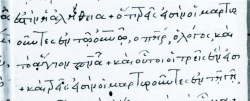 ἐστὶν ἡ ἀλήθεια + ὅτι τρεῖς εἰσιν οἱ μαρτυρ
οῦντες ἐν τῷ οὐρανῷ, ὁ πηρ, ὁ λόγος, καὶ
τὸ ἅγιον πνα + καὶ οὗτοι οἱ τρεῖς ἕν εἰσι
+ καὶ τρεῖς εἰσιν οἱ μαρτυροῦντες ἐν τῇ γῇ